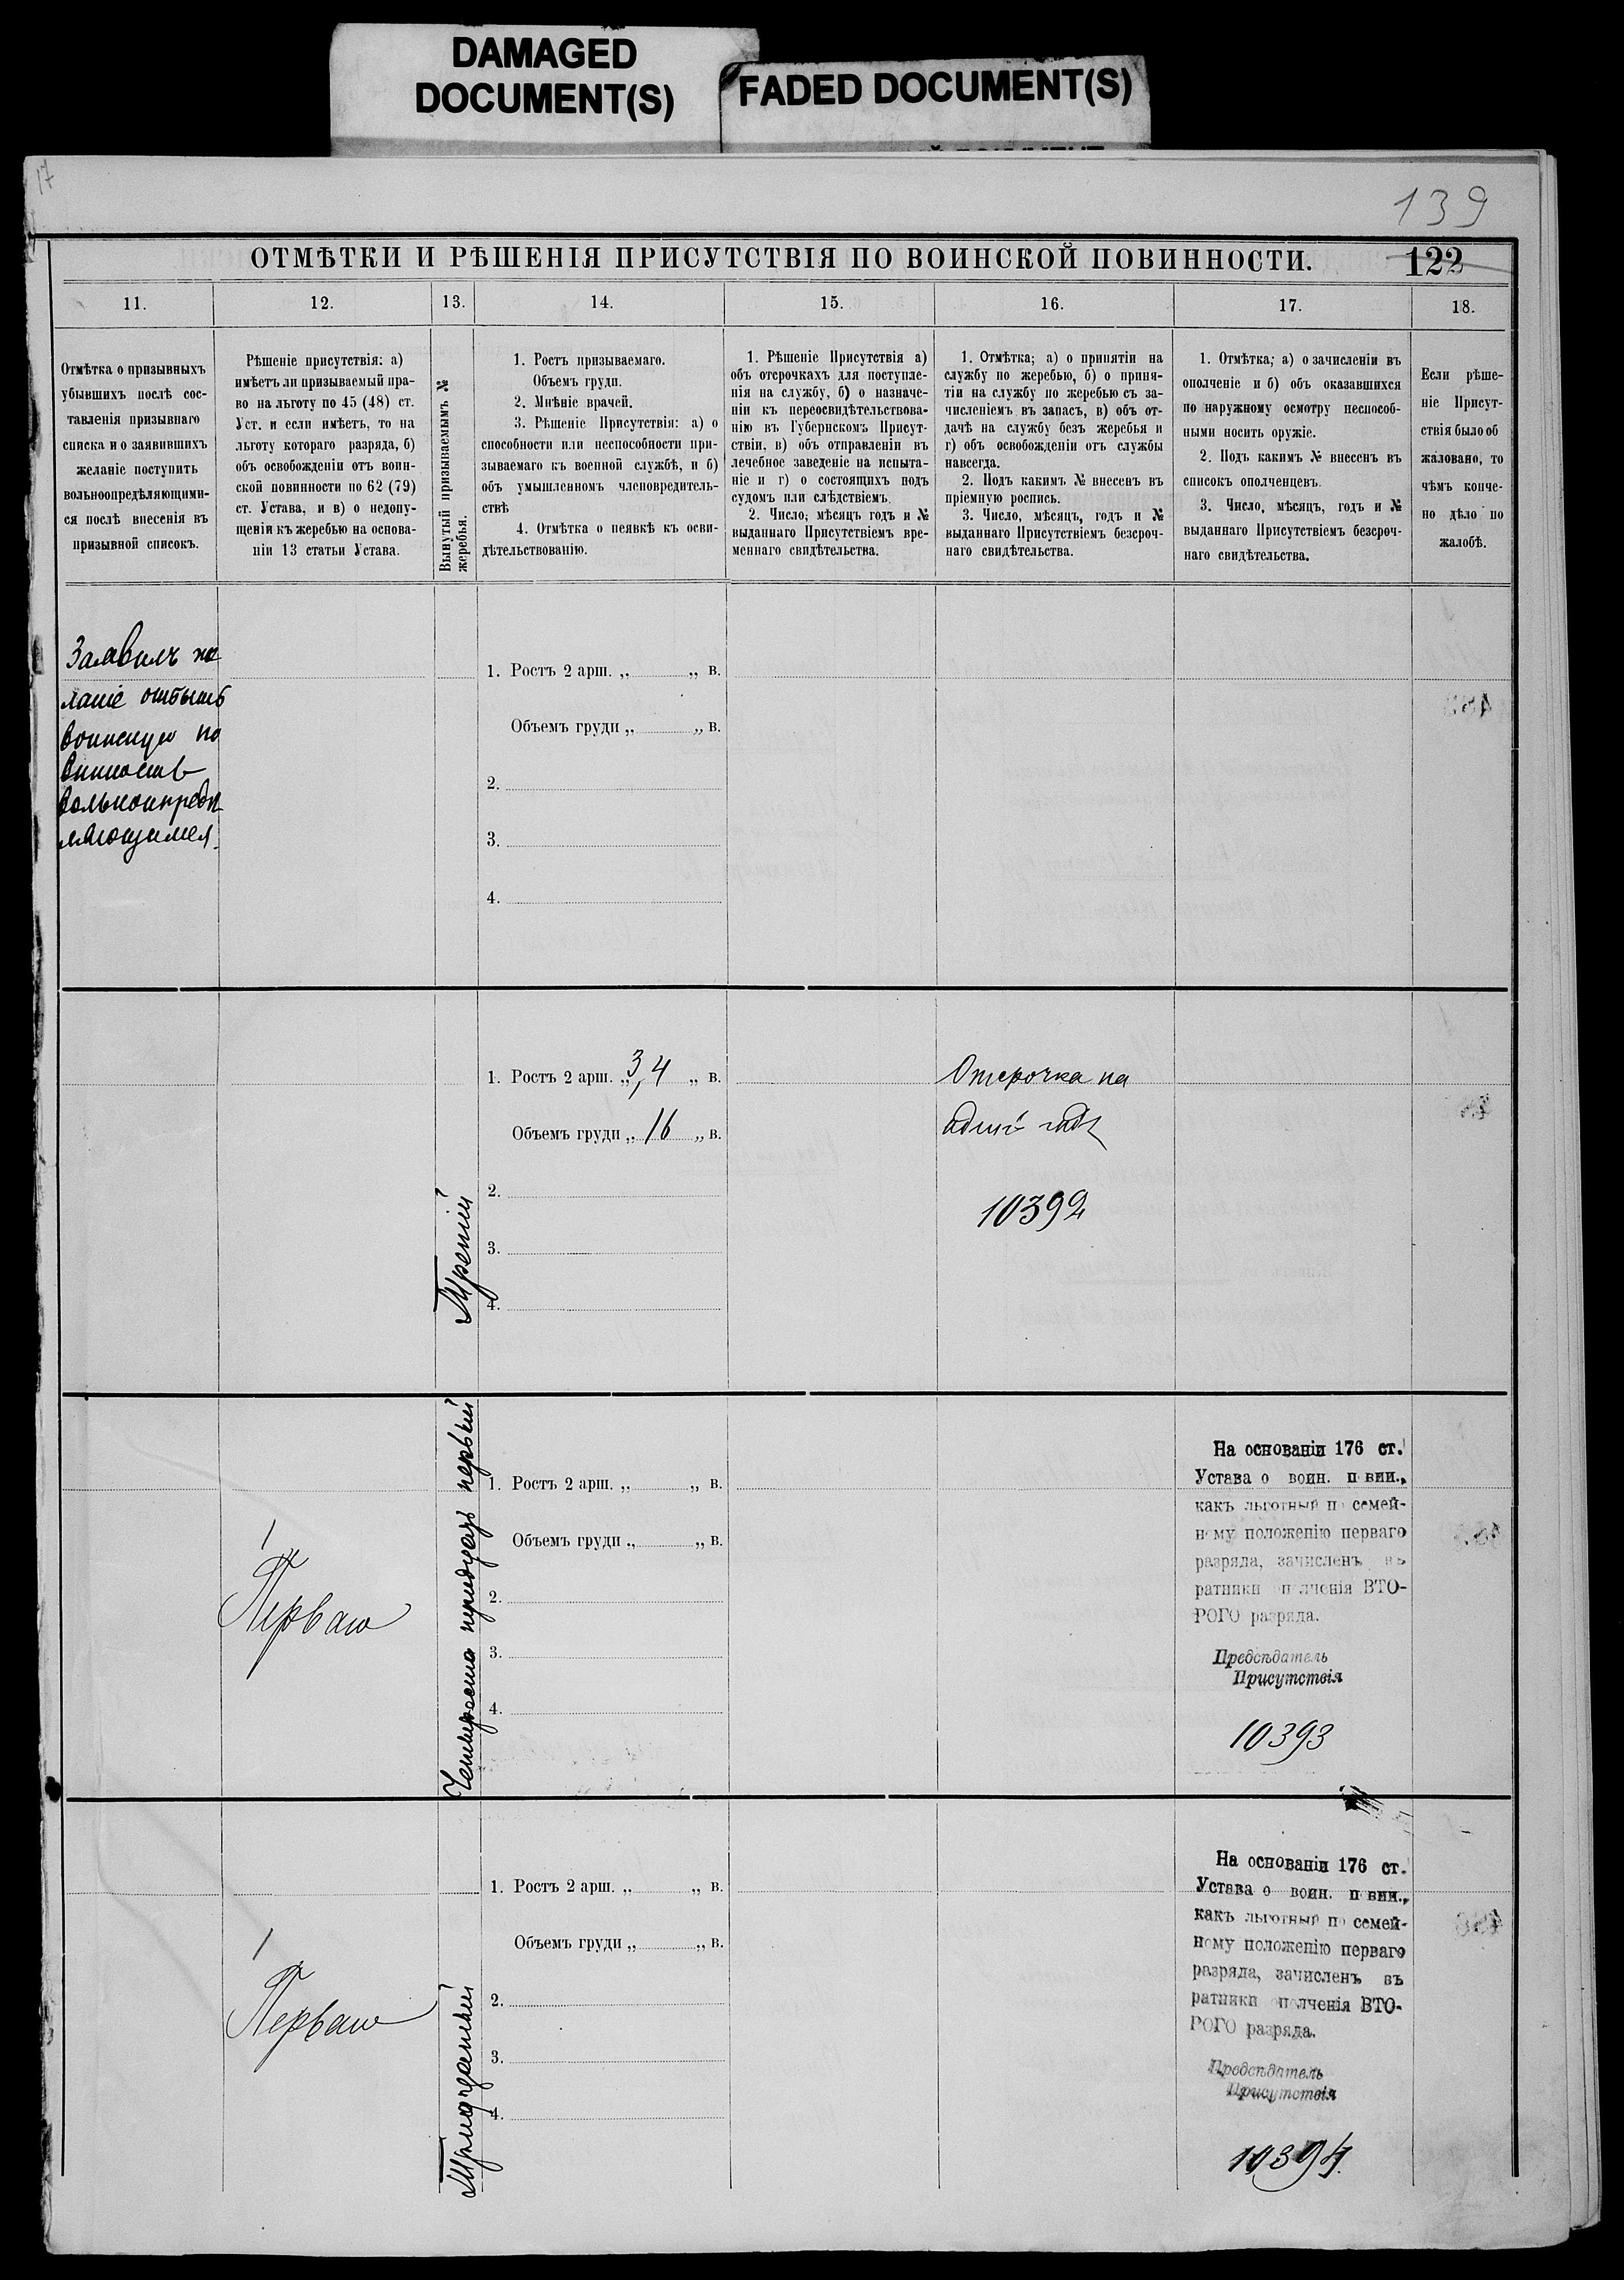 DAMAGED
DOCUMENT(S)
FADED DOCUMENT(S)
17
139
ОТМѢТКИ И РѢШЕНІЯ ПРИСУТСТВІЯ ПО ВОИНСКОЙ ПОВИННОСТИ.
122
11.
Отмѣтка о призывныхъ
убывшихъ послѣ сос-
тавленія призывнаго
списка и о заявившихъ
желаніе поступить
вольноопредѣляющими-
ся послѣ внесенія въ
призывной списокъ.
12.
Рѣшеніе присутствія: а)
имѣетъ ли призываемый пра-
во на льготу по 45 (48) ст.
Уст. и если имѣетъ, то на
льготу котораго разряда, б)
объ освобожденіи отъ воин-
ской повинности по 62 (79)
ст. Устава, и в) о недопу-
щеніи къ жеребью на основа-
ніи 13 статьи Устава.
13.
Вынутый призываемымъ №
жеребья.
14.
1. Ростъ призываемаго.
Объемъ груди.
2. Мнѣніе врачей.
3. Рѣшеніе Присутствія: а) о
способности или неспособности при-
зываемаго къ военной службѣ, и б)
объ умышленномъ членовредитель-
ствѣ
4. Отмѣтка о неявкѣ къ осви-
дѣтельствованію.
15.
1. Рѣшеніе Присутствія а)
объ отсрочкахъ для поступле-
нія на службу, б) о назначе-
ніи къ переосвидѣтельствова-
нію въ Губернскомъ Присут-
ствіи, в) объ отправленіи въ
лечебное заведеніе на испыта-
ніе и г) о состоящихъ подъ
судомъ или слѣдствіемъ.
2. Число, мѣсяцъ годъ и №
выданнаго Присутствіемъ вре-
меннаго свидѣтельства.
16.
1. Отмѣтка; а) о принятіи на
службу по жеребью, б) о приня-
тіи на службу по жеребью съ за-
численіемъ въ запасъ, в) объ от-
дачѣ на службу безъ жеребья и
г) объ освобожденіи отъ службы
навсегда.
2. Подъ какимъ № внесенъ въ
пріемную роспись.
3. Число, мѣсяцъ, годъ и №
выданнаго Присутствіемъ безсроч-
наго свидѣтельства.
17.
1. Отмѣтка; а) о зачисленіи въ
ополченіе и б) объ оказавшихся
по наружному осмотру неспособ-
ными носить оружіе.
2. Подъ какимъ № внесенъ въ
списокъ ополченцевъ.
3. Число, мѣсяцъ, годъ и №
выданнаго Присутствіемъ безсроч-
наго свидѣтельства.
18.
Если рѣше-
ніе Присут-
ствія было об
жаловано, то
чѣмъ конче-
но дѣло по
жалобѣ.
Заявилъ же
ланіе отбыть
воинскую по
винность
вольноопредѣ
ляющимся.
1. Ростъ 2 арш. „ „ в.
Объемъ груди „ „ в.
2.
3.
4.
Третій
1. Ростъ 2 арш. „ 3,4 „ в.
Объемъ груди „ 16 „ в.
2.
3.
4.
Отсрочка на
одинъ годъ
10392
1
Перваго
Четыреста тридцать первый
1. Ростъ 2 арш. „ „ в.
Объемъ груди „ „ в.
2.
3.
4.
На основаніи 176 ст.
Устава о воин. п вин.,
какъ льготный п семей-
н му положенію перваго
разряда, зачисленъ въ
ратники п лченія ВТО-
РОГО разряда.
Предсѣдатель
Присутствія
10393
1
Перваго
Тридцатый
1. Ростъ 2 арш. „ „ в.
Объемъ груди „ „ в.
2.
3.
4.
На основаніи 176 ст.
Устава о воин. п вин.,
какъ льготный п семей-
ному положенію перваго
разряда, зачисленъ въ
ратники п лченія ВТО-
РОГО разряда.
Предсѣдатель
Присутствія
10394.